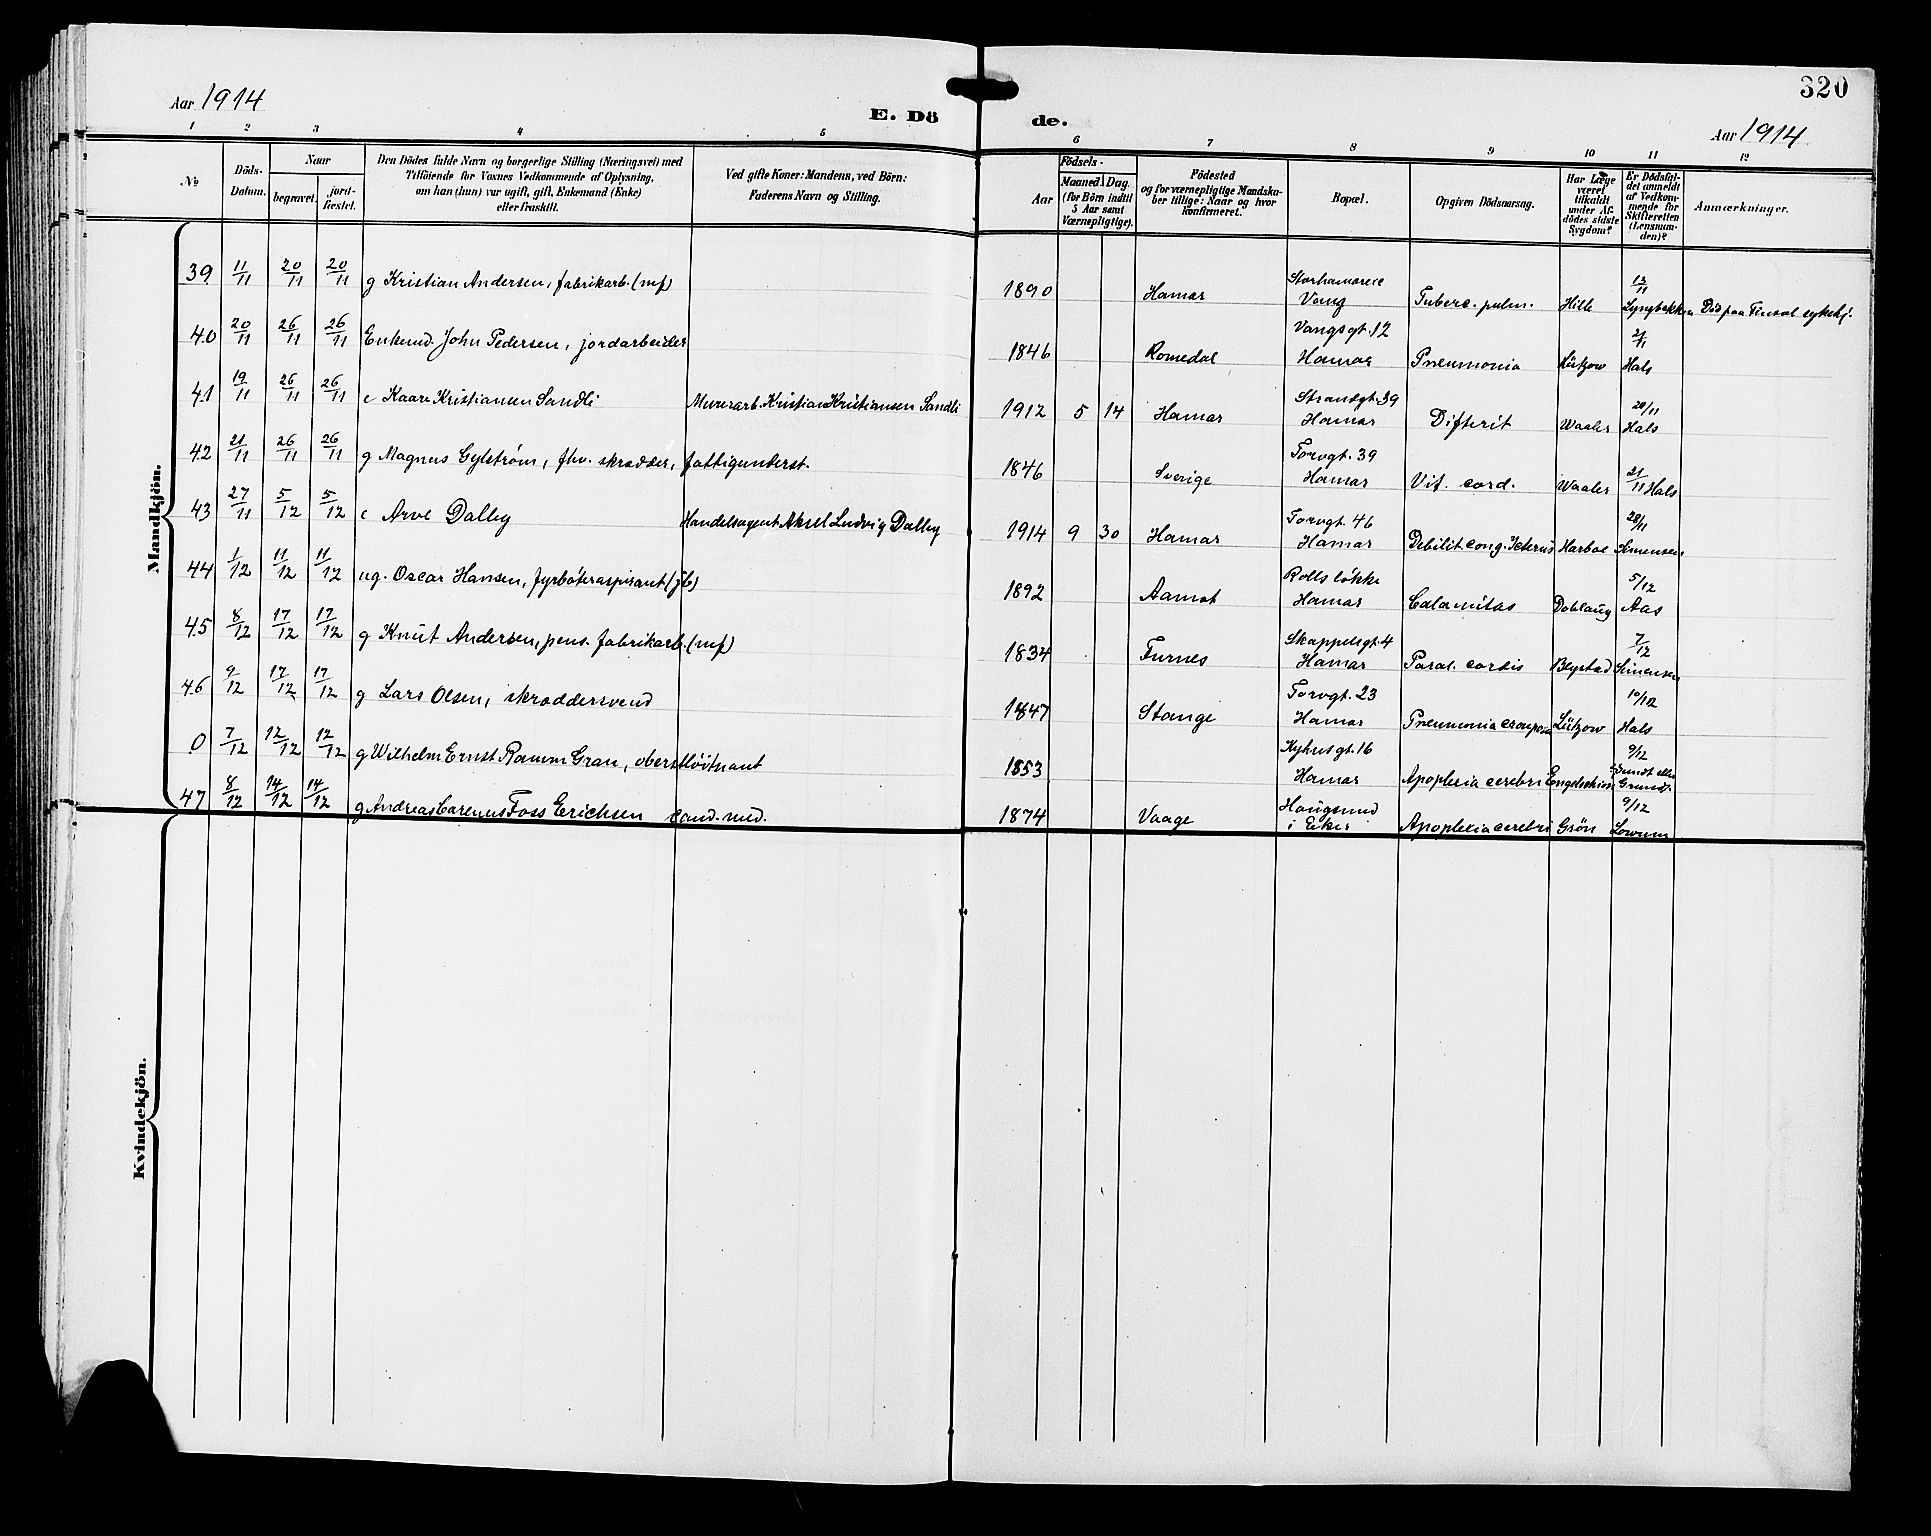 320
Aar 1914
E. Dö de.
Aar 1914
1 2 3 4 5 6 7 8 9 10 11 12
No
Döds-Datum.
Naar
begravet.
jord-fæstet.
Den Dödes fulde Navn og borgerlige Stilling (Næringsvei) med
Tilföiende for Voxnes Vedkommende af Oplysning,
om han (hun) var ugift, gift, Enkemand (Enke)
eller fraskilt.
Ved gifte Koner: Mandens, ved Börn:
Faderens Navn og Stilling.
Födsels-
Aar
Maaned. Dag.
(for Börn indtil
5 Aar samt
Værnepligtige).
Födested
og for værnepligtige Mandska-
ber tillige: Naar og hvor
konfirmeret.
Bopæl.
Opgiven Dödsaarsag.
Har Læge
været
tilkaldt
under Af-
dödes sidste
Sygdom?
Er Dödsfal-
det anmeldt
af Vedkom-
mende for
Skifteretten
(Lensman-
den)?
Anmærkninger.
Mandkjön.
39 11/11 20/11 20/11 g Kristian Andersen, fabrikarb. (mf) 1890 Hamar Storhamar Vang Tuberc. pulm. Hille 12/11 Lyngbakken Död paa
40 20/11 26/11 26/11 Enkemd. John Pedersen, jordarbeider 1846 Romedal Vangsgt. 12 Hamar Pneumonia Lützow Hals
41 19/11 26/11 26/11 e Kaare Kristiansen Sandli Murerarb. Kristian Kristiansen Sandli 1912 5 14 Hamar Strandgt. 39 Hamar Difterit Waaler 20/11 Hals
42 21/11 26/11 26/11 g Magnus Gylstrøm, fhv. skrædder, fattigunderst. 1846 Sverige Torvgt. 39 Hamar Vit. cord. Waaler 21/11 Hals
43 27/11 5/12 5/12 e Arve Dalby Handelsagent Aksel Ludvig Dalby 1914 9 30 Hamar Torvgt. 46 Hamar Debilit cong. Icterus Harboe 28/11 Simensen
44 1/12 11/12 11/12 ug. Oscar Hansen, fyrbøteraspirant (jb) 1892 Aamot Rollsløkke Hamar Calamitas Doblaug 5/12 Aas
45 8/12 17/12 17/12 g Knut Andersen, pens. fabrikarb. (mf) 1834 Furnes Skappelsgt. 4 Hamar Paral. cordis Blystad 7/12 Simensen
46 9/12 17/12 17/12 g Lars Olsen, skræddersvend 1847 Stange Torvgt. 23 Hamar Pneumonia crouposa Lützow 10/12 Hals
0 7/12 12/12 12/12 g Wilhelm Ernst Ramm Gran, oberstløitnant 1853 Kyhusgt. 16 Hamar Apoplexia cerebri 9/12
47 8/12 14/12 14/12 g Andreas Carenus Foss Erichsen cand. med. 1874 Vaage Hougsund i Eker Apoplexia cerebri Grön 9/12 Lowum
Kvindekjön.